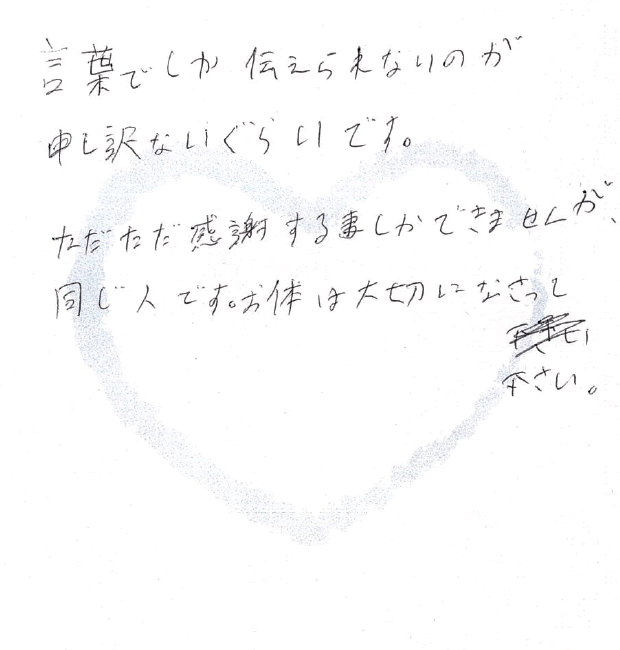 言葉でしか伝えられないのが
申し訳ないぐらいです。
ただただ感謝する事しかできませんが、
同じ人です。お体は大切になさって
下さい。